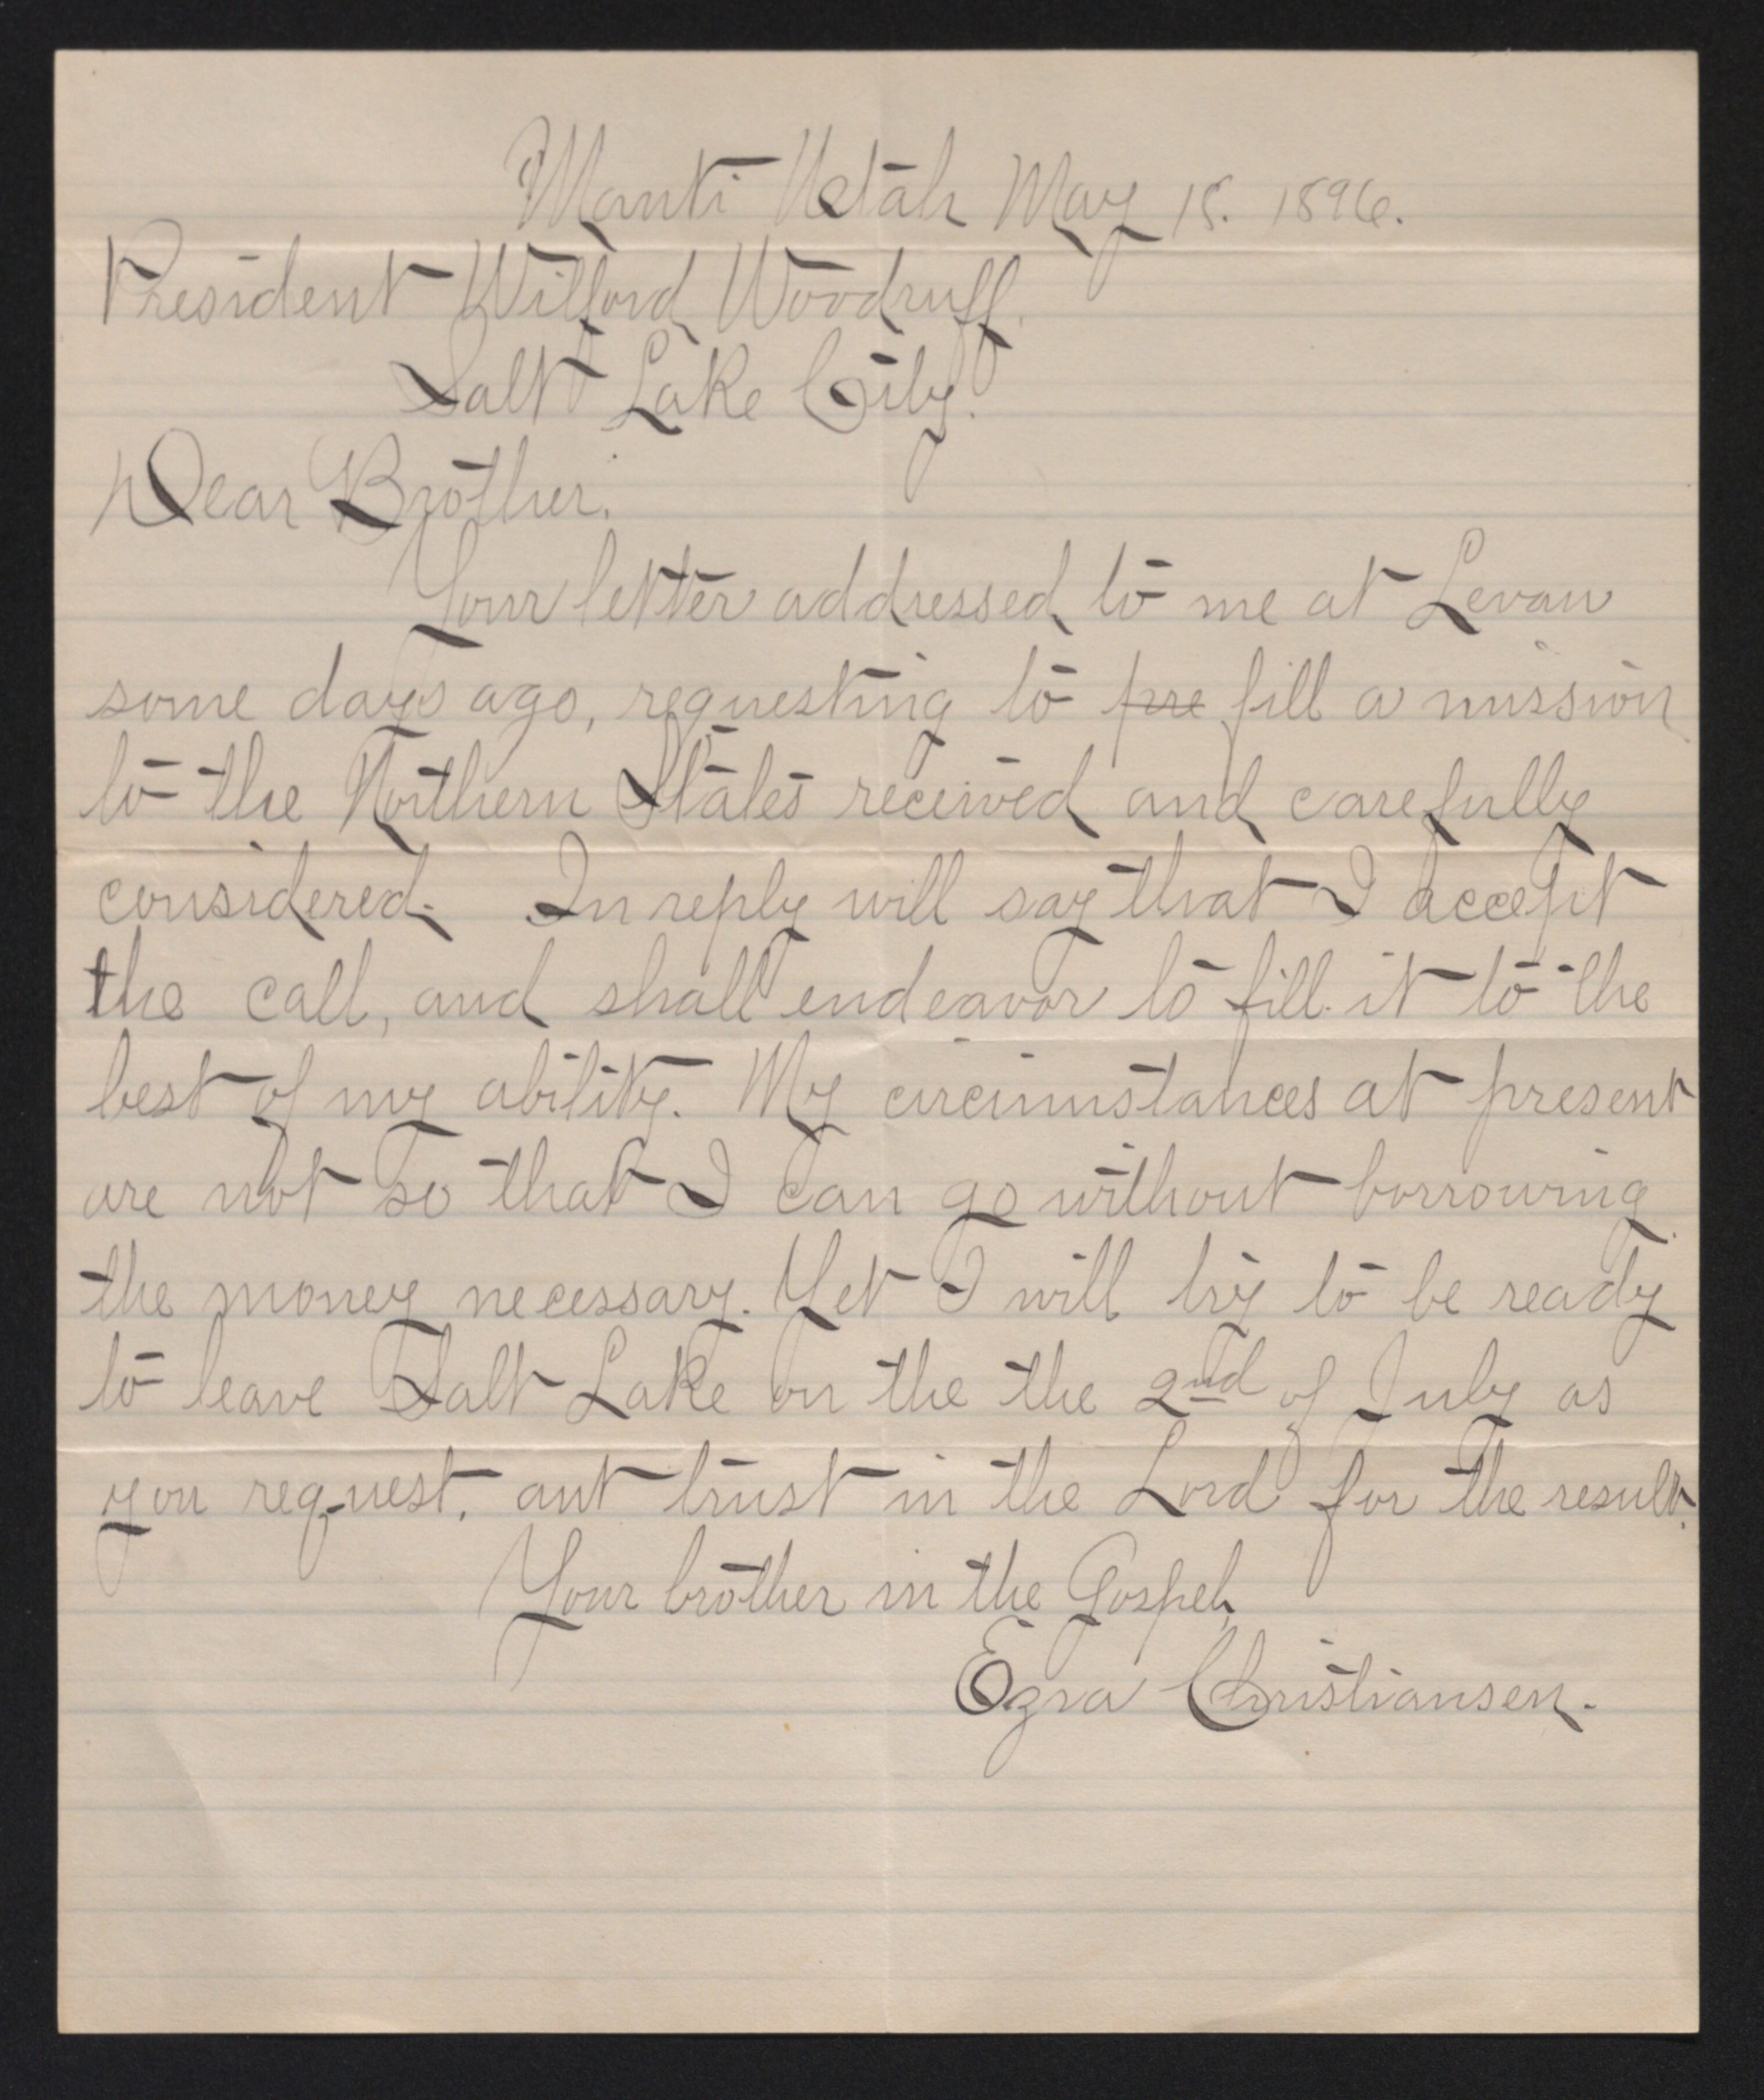 Manti Utah May 18. 1896.
President Wilford Woodruff.
Salt Lake City.
Dear Brother.
Your letter addressed to me at Levan
some days ago, requesting to ~~pre~~ fill a mission
to the Northern States received and carefully
considered. In reply will say that I accept
the call, and shall endeavor to fill it to the
best of my ability. My circumstances at present
are not so that I can go without borrowing
the money necessary. Yet I will try to be ready
to leave Salt Lake on the the 2nd of July as
you request, ant trust in the Lord for the result.
Your brother in the Gospel,
Ezra Christiansen.